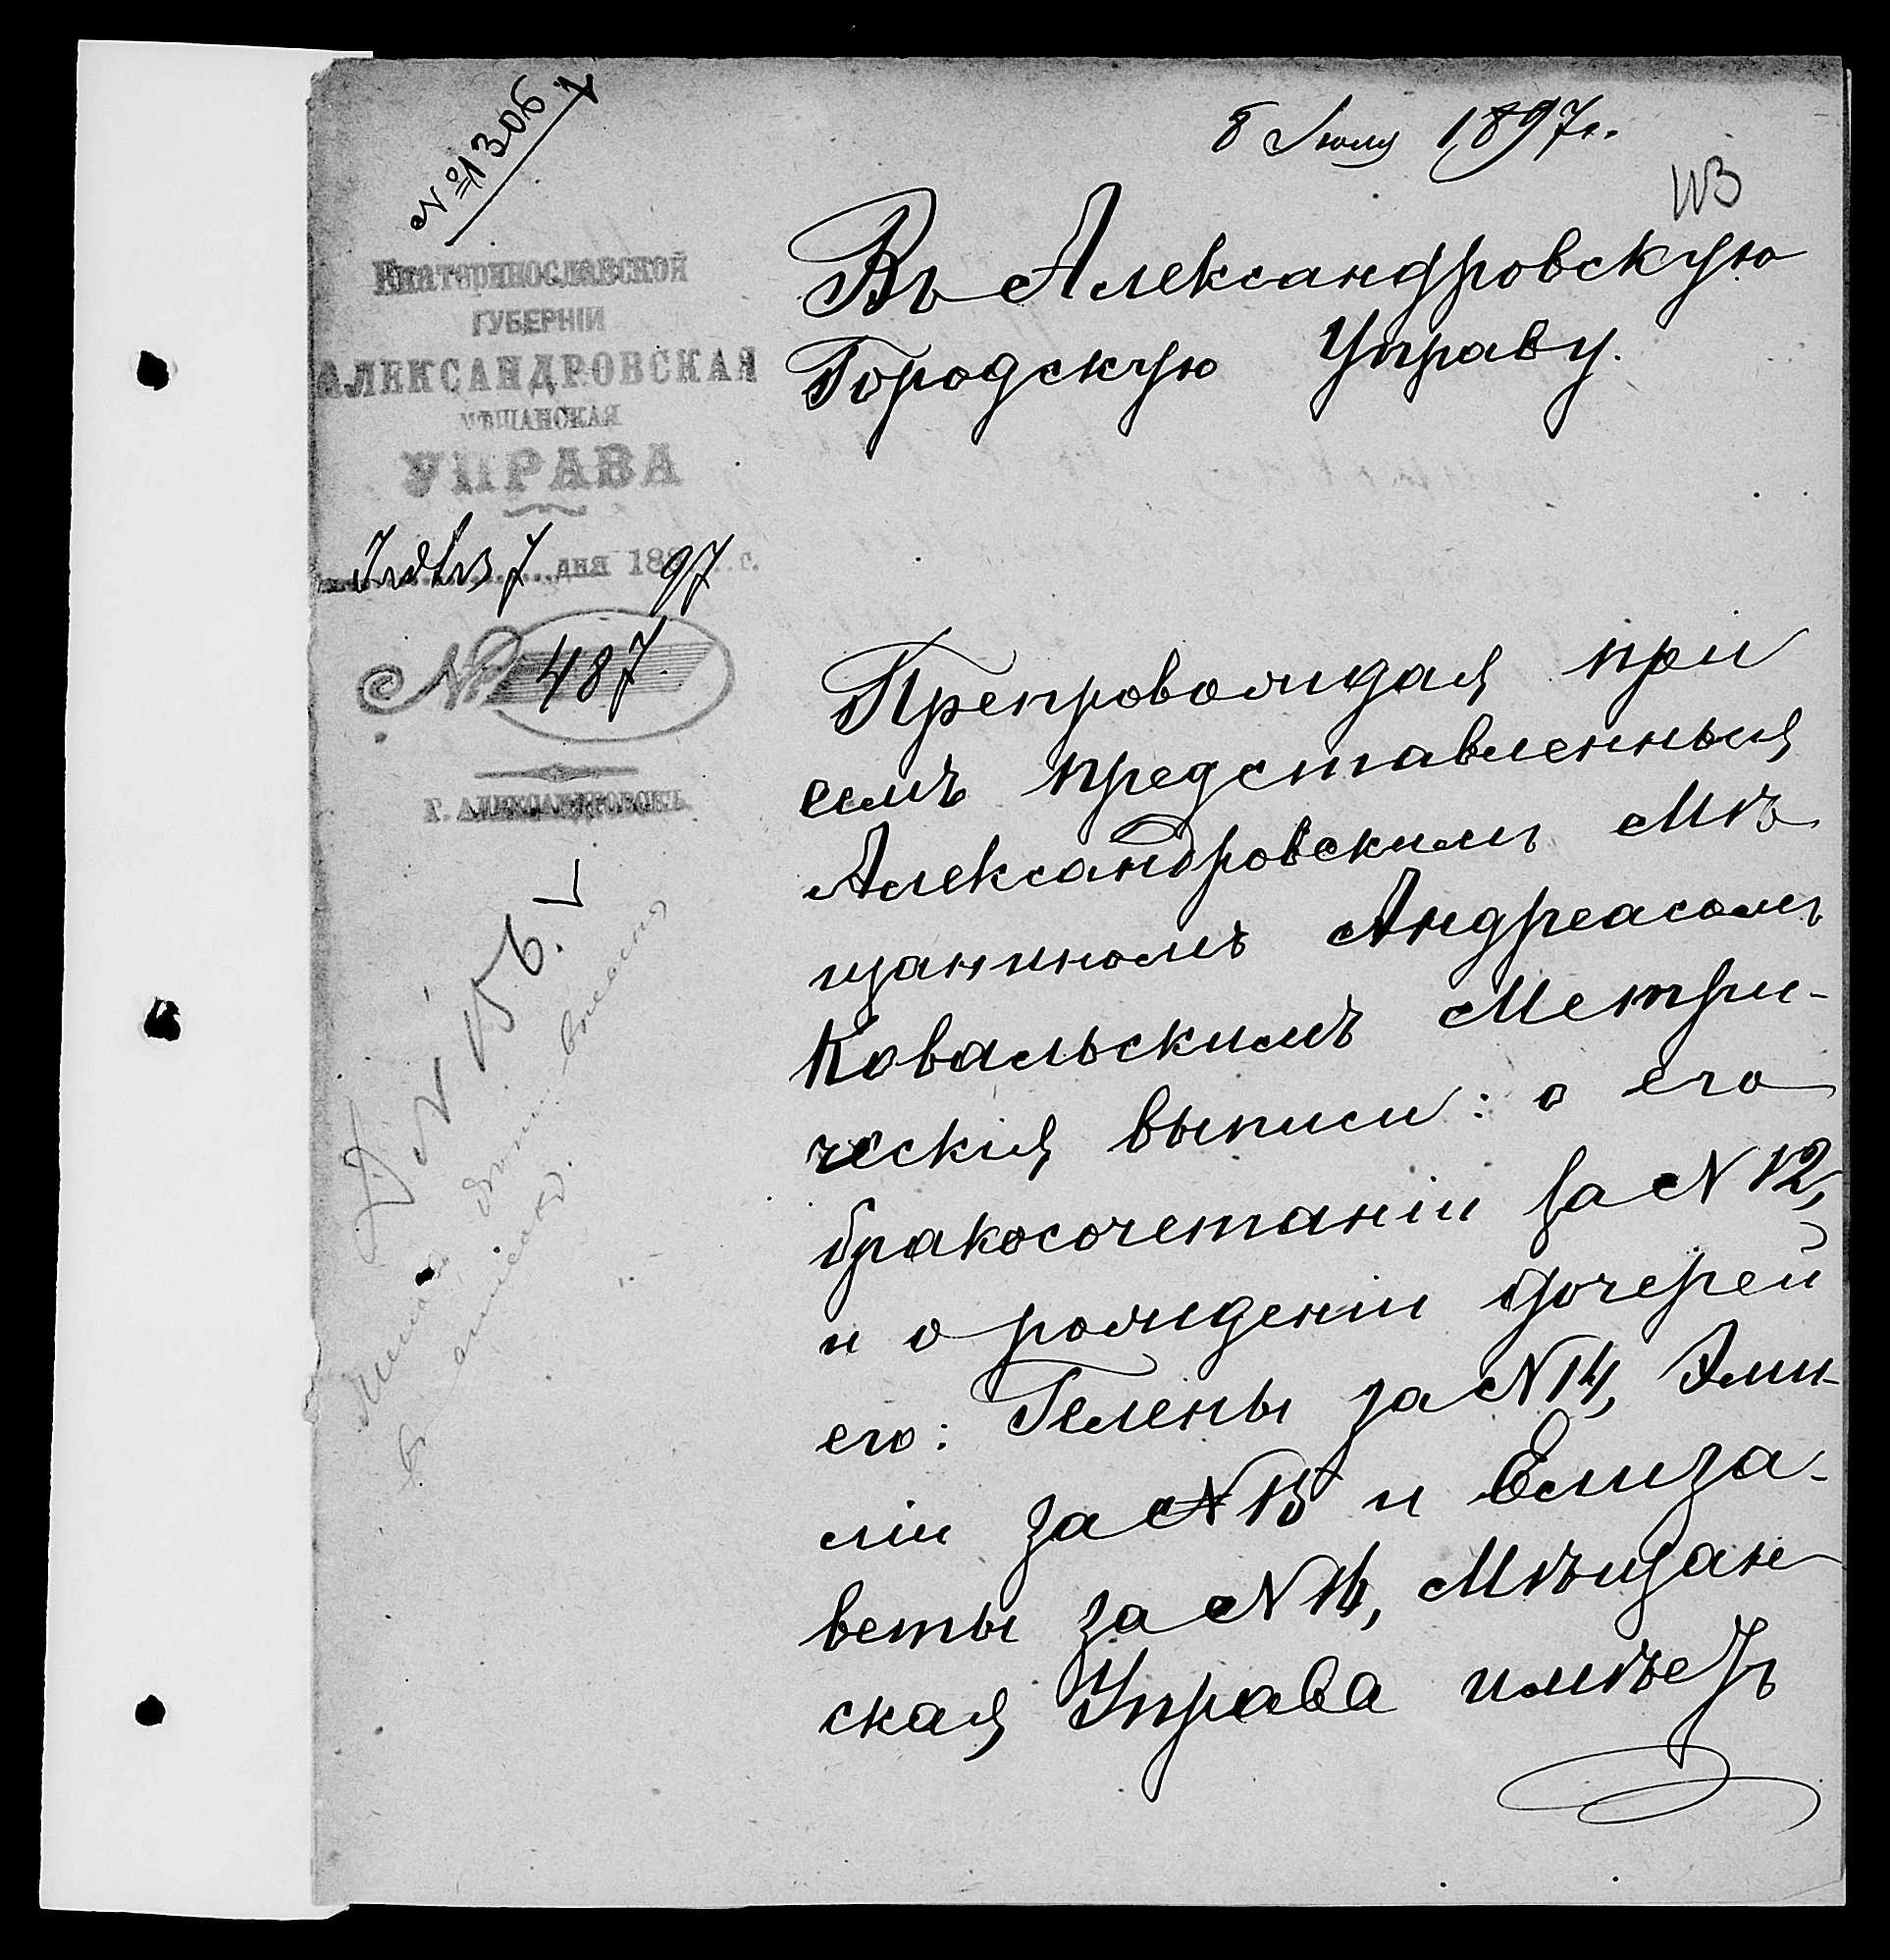 № 1306
8 Июля 1897 г.
113
Екатеринославской
ГУБЕРНІИ
АЛЕКСАНДРОВСКАЯ
МѢЩАНСКАЯ
УПРАВА
7 дня 1897 г.
№ 487.
Г. АЛЕКСАНДРОВСКЪ.
Въ Александровскую
Городскую Управу.
Препровождая при
семъ представленныя
Александровскимъ Мѣ
щаниномъ Андреасомъ
Ковальскимъ Метри-
ческія выписи: о его
бракосочетаніи за N 12,
и о рожденіи дочерей
его: Гелены за N 14, Эми-
ліи за N 15 и Елиза-
веты за N 14, Мѣщан
ская Управа имѣетъ
Д N 156.